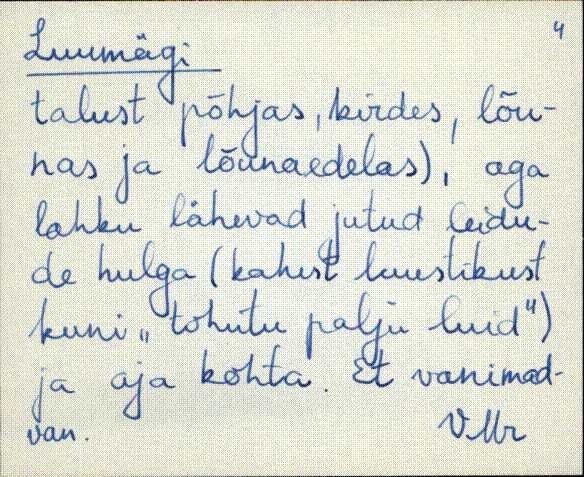 4
Luumägi
talust põhjas, kirdes, lõu-
nas ja lõunaedelas), aga
lahku lähevad jutud leidu-
de hulga (kahest luustikust
kuni „tohutu palju luid")
ja aja kohta. Et vanimad-
van. VMr